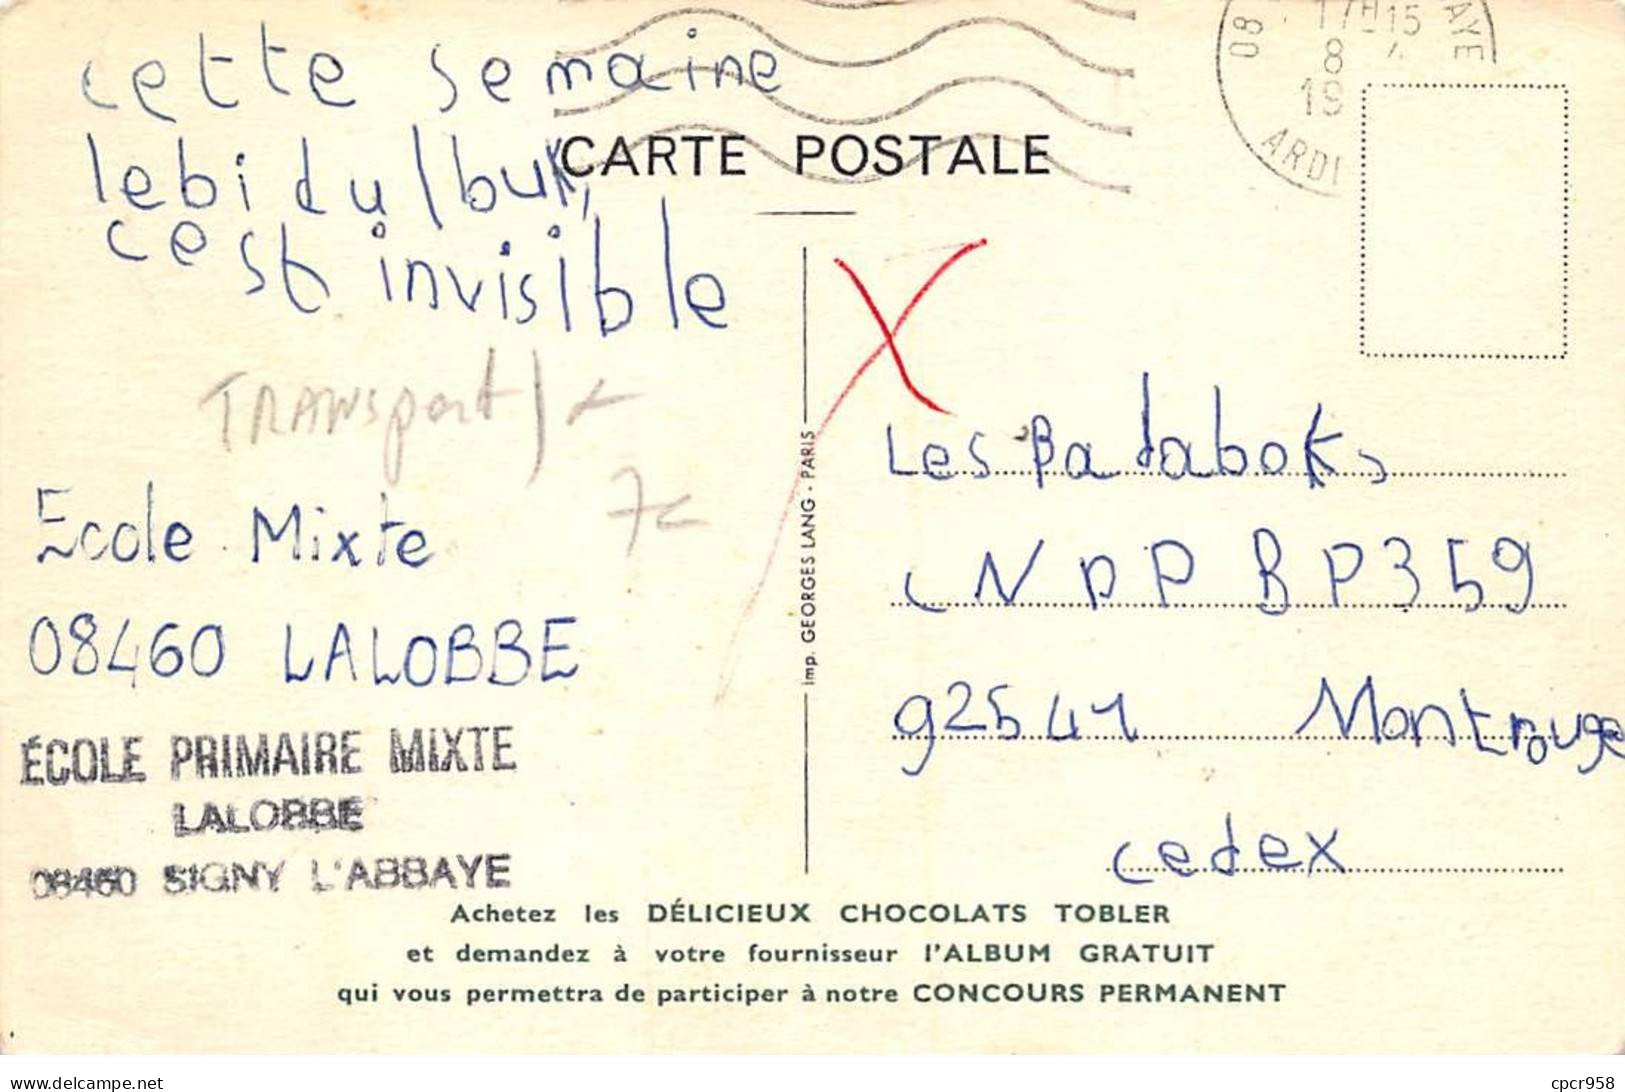 cette semaine
lebidulbuk,
cest invisible
TRANSport)
Ecole Mixte
08460 LALOBBE
ÉCOLE PRIMAIRE MIXTE
LALOBBE
08460 SIGNY L'ABBAYE
CARTE POSTALE
08
17H15
8
19
ARDE
AYE
Imp. GEORGES LANG - PARIS
Les Pataboks
CNDP BP359
92541 Montrouge
cedex
Achetez les DÉLICIEUX CHOCOLATS TOBLER
et demandez à votre fournisseur l'ALBUM GRATUIT
qui vous permettra de participer à notre CONCOURS PERMANENT
delcampe.net
cpcr958